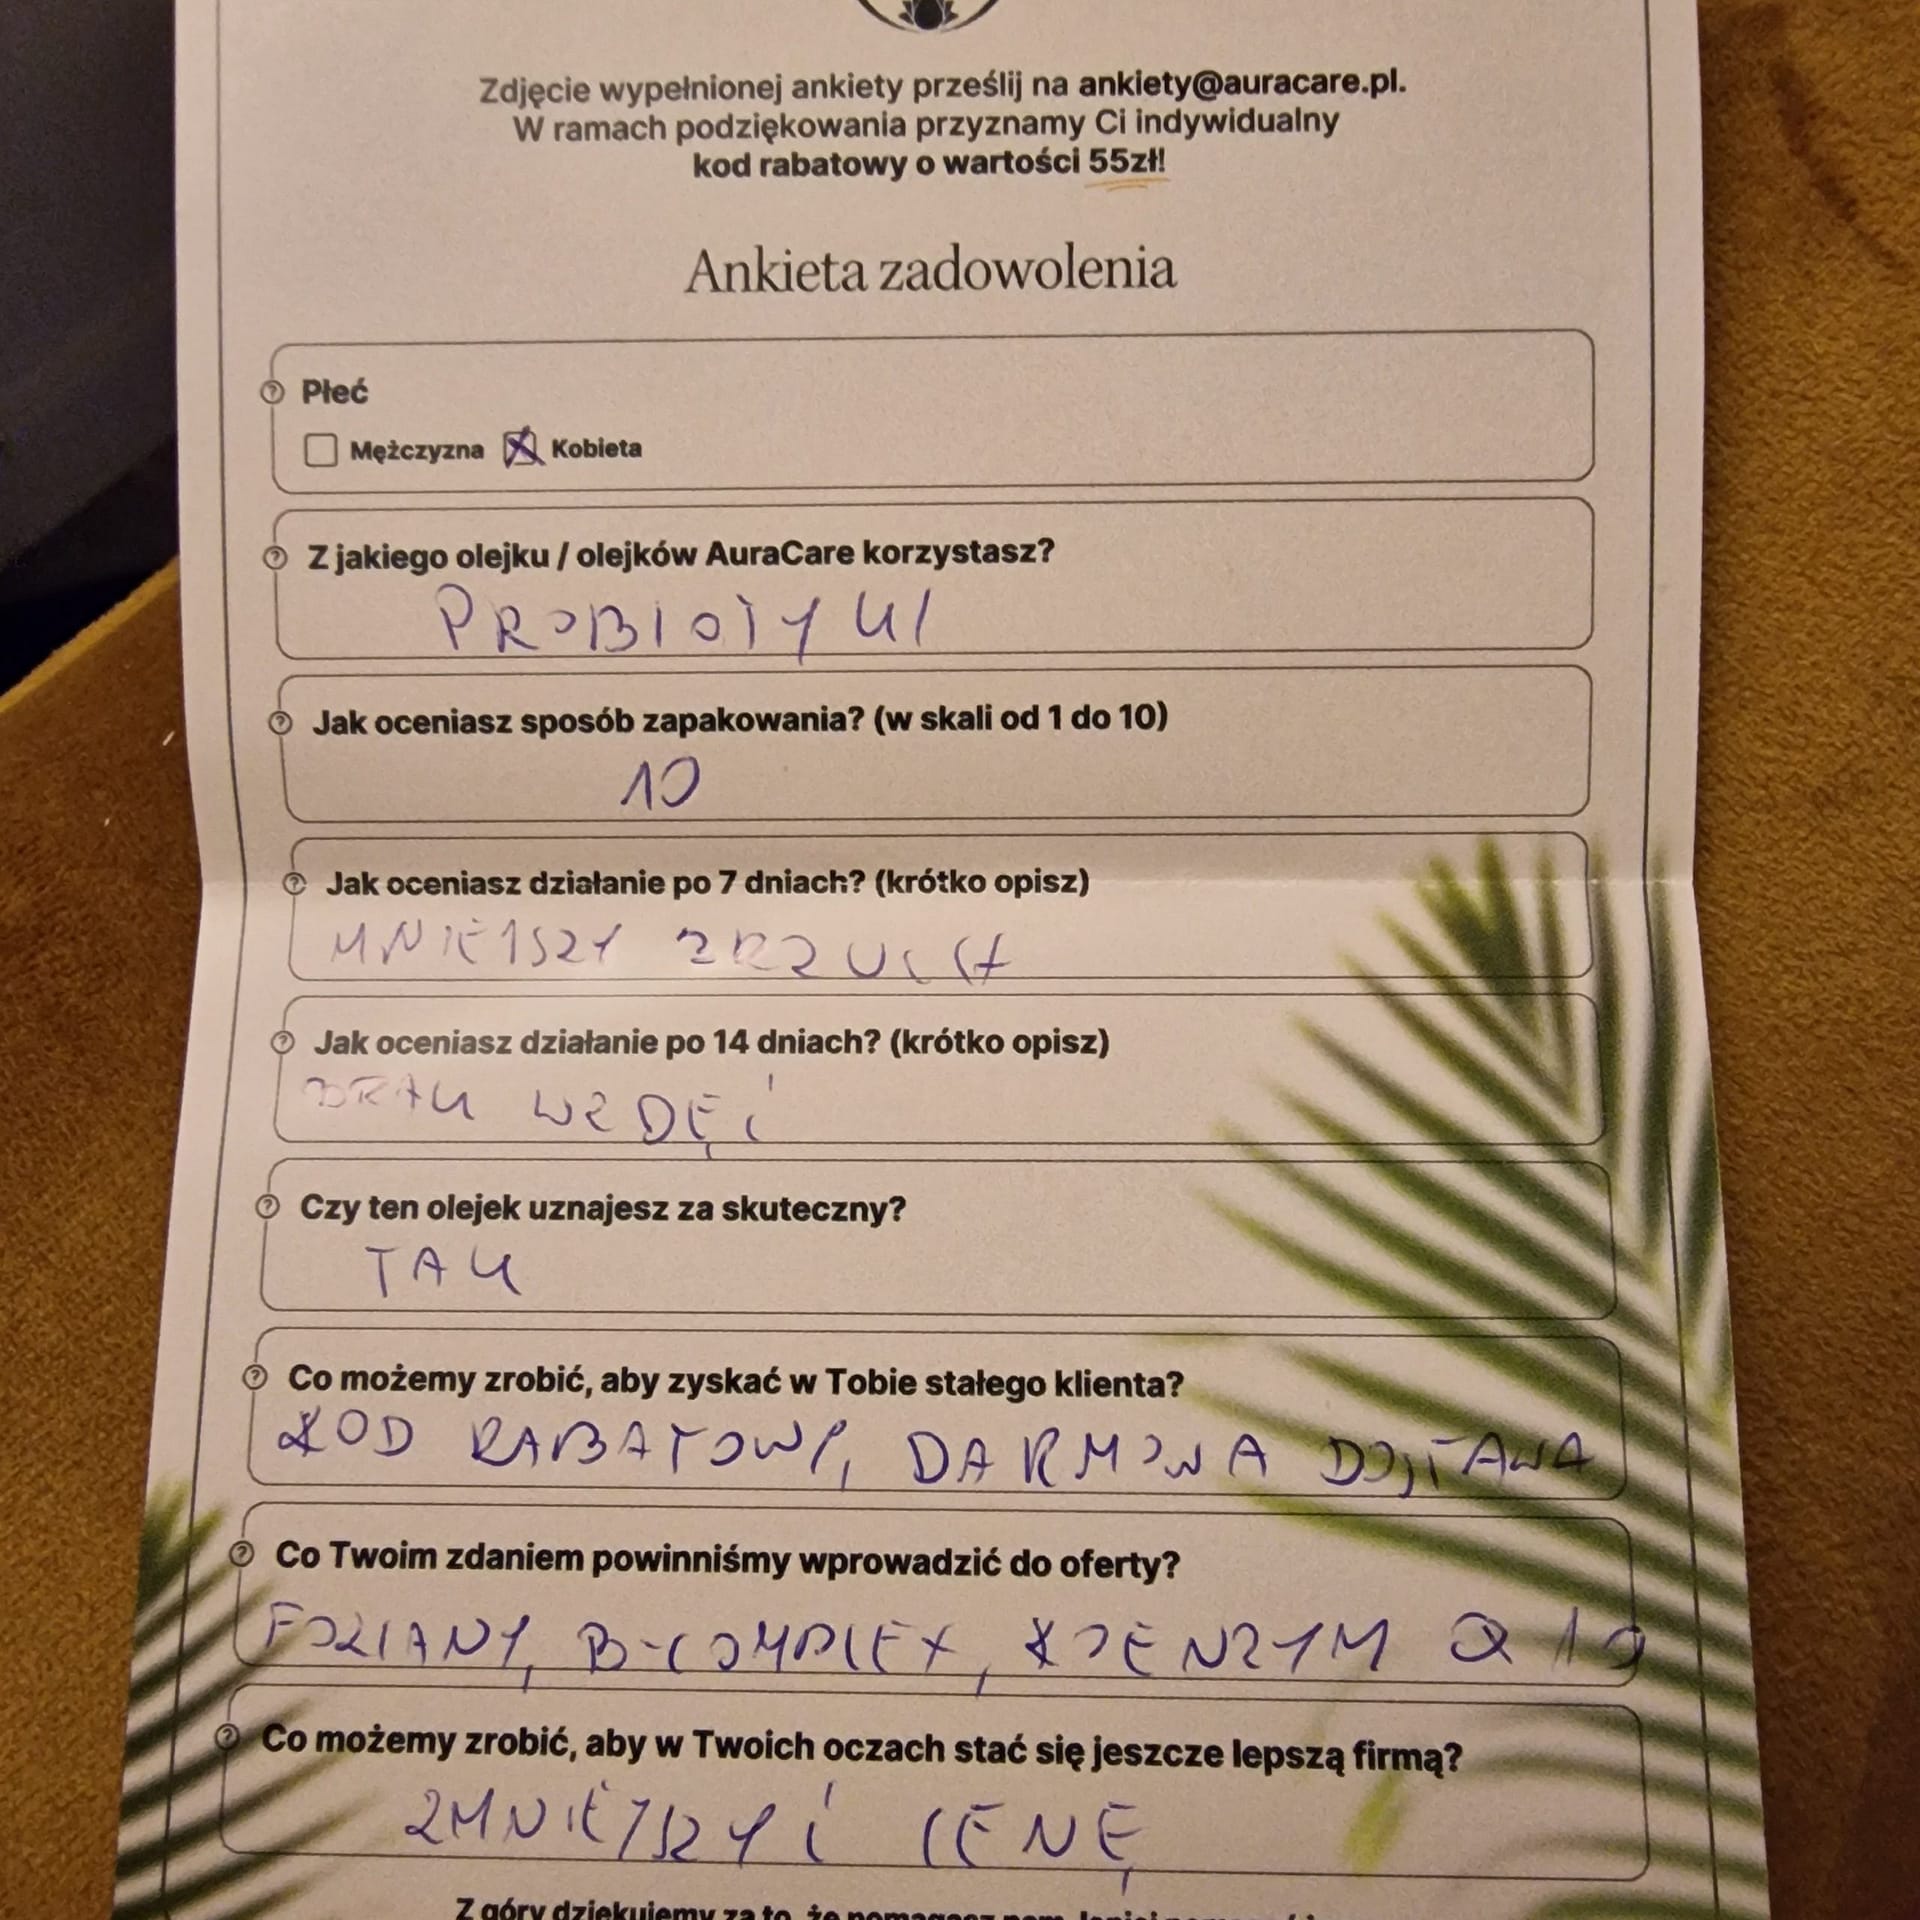 Zdjęcie wypełnionej ankiety prześlij na ankiety@auracare.pl.
W ramach podziękowania przyznamy Ci indywidualny
kod rabatowy o wartości 55zł!
Ankieta zadowolenia
Płeć
Mężczyzna Kobieta
Z jakiego olejku / olejków AuraCare korzystasz?
PROBIOTYKI
Jak oceniasz sposób zapakowania? (w skali od 1 do 10)
10
Jak oceniasz działanie po 7 dniach? (krótko opisz)
MNIEJSZY BRZUCH
Jak oceniasz działanie po 14 dniach? (krótko opisz)
BRAK WZDĘĆ
Czy ten olejek uznajesz za skuteczny?
TAK
Co możemy zrobić, aby zyskać w Tobie stałego klienta?
KOD RABATOWY, DARMOWA DOSTAWA
Co Twoim zdaniem powinniśmy wprowadzić do oferty?
FOLIANY, B-COMPLEX, KOENZYM Q10
Co możemy zrobić, aby w Twoich oczach stać się jeszcze lepszą firmą?
ZMNIEJSZYĆ CENĘ
Z góry dziękujemy za to, że pomagasz nam